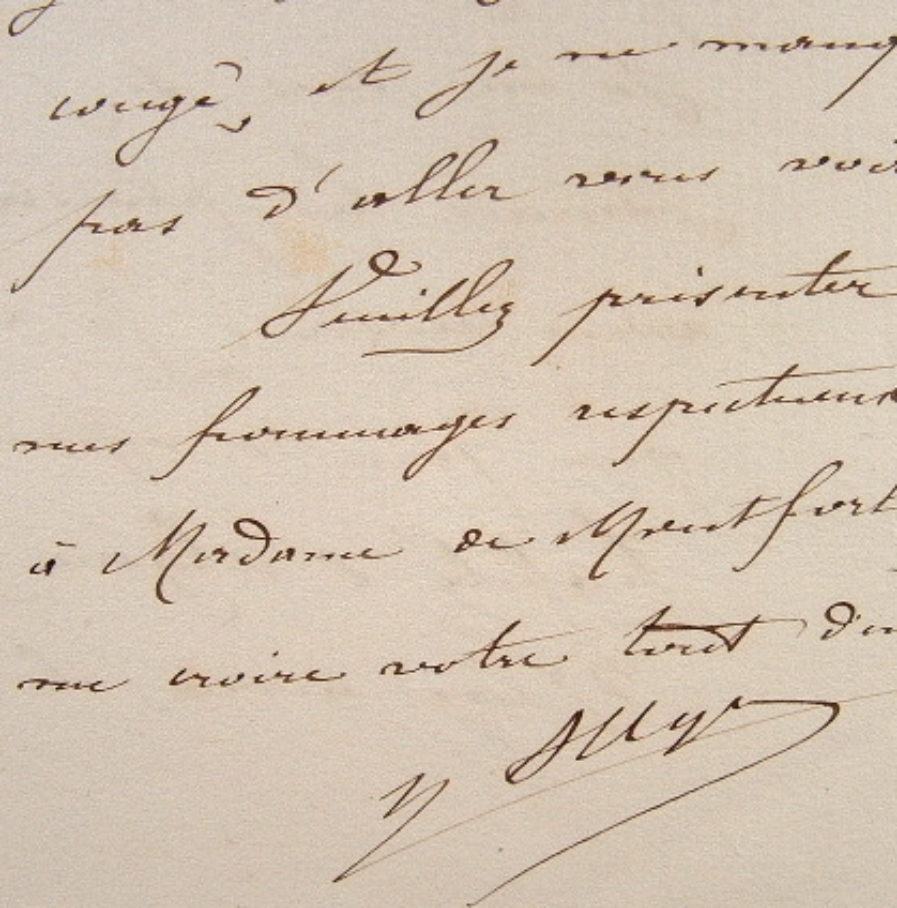 congé, et je ne manq
pas d'aller vous voir
Veuillez présenter
mes hommages respectueux
à Madame de Montfort
me croire votre tout dé